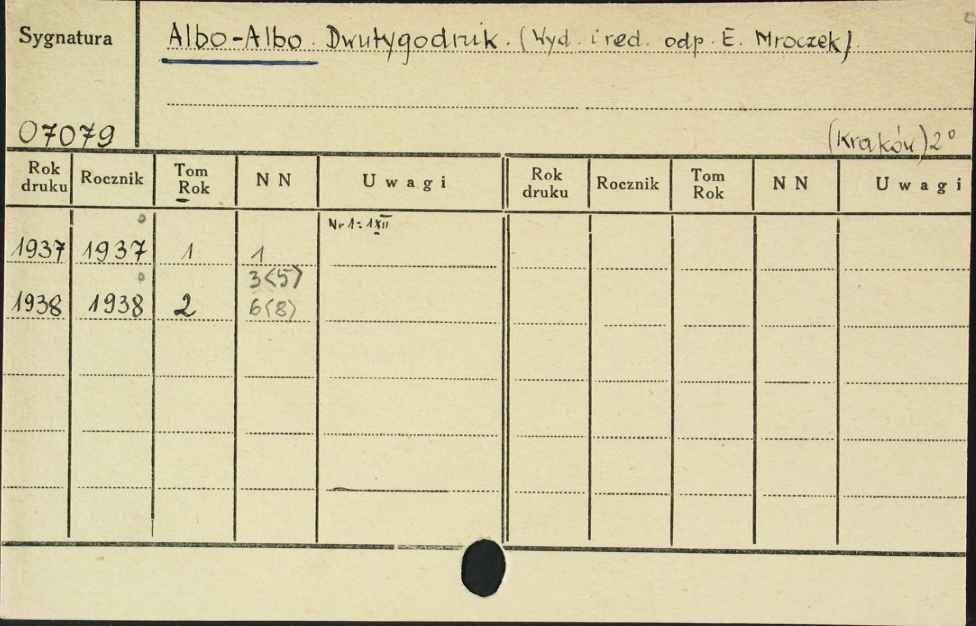 Sygnatura Albo-Albo. Dwutygodnik. (Wyd. i red. odp. E. Mroczek).
07079 (Kraków) 2°
Rok druku Rocznik Tom Rok NN Uwagi Rok druku Rocznik Tom Rok NN Uwagi
Nr 1: 1 XII
1937 1937 1 1
3<5>
1938 1938 2 6<8>